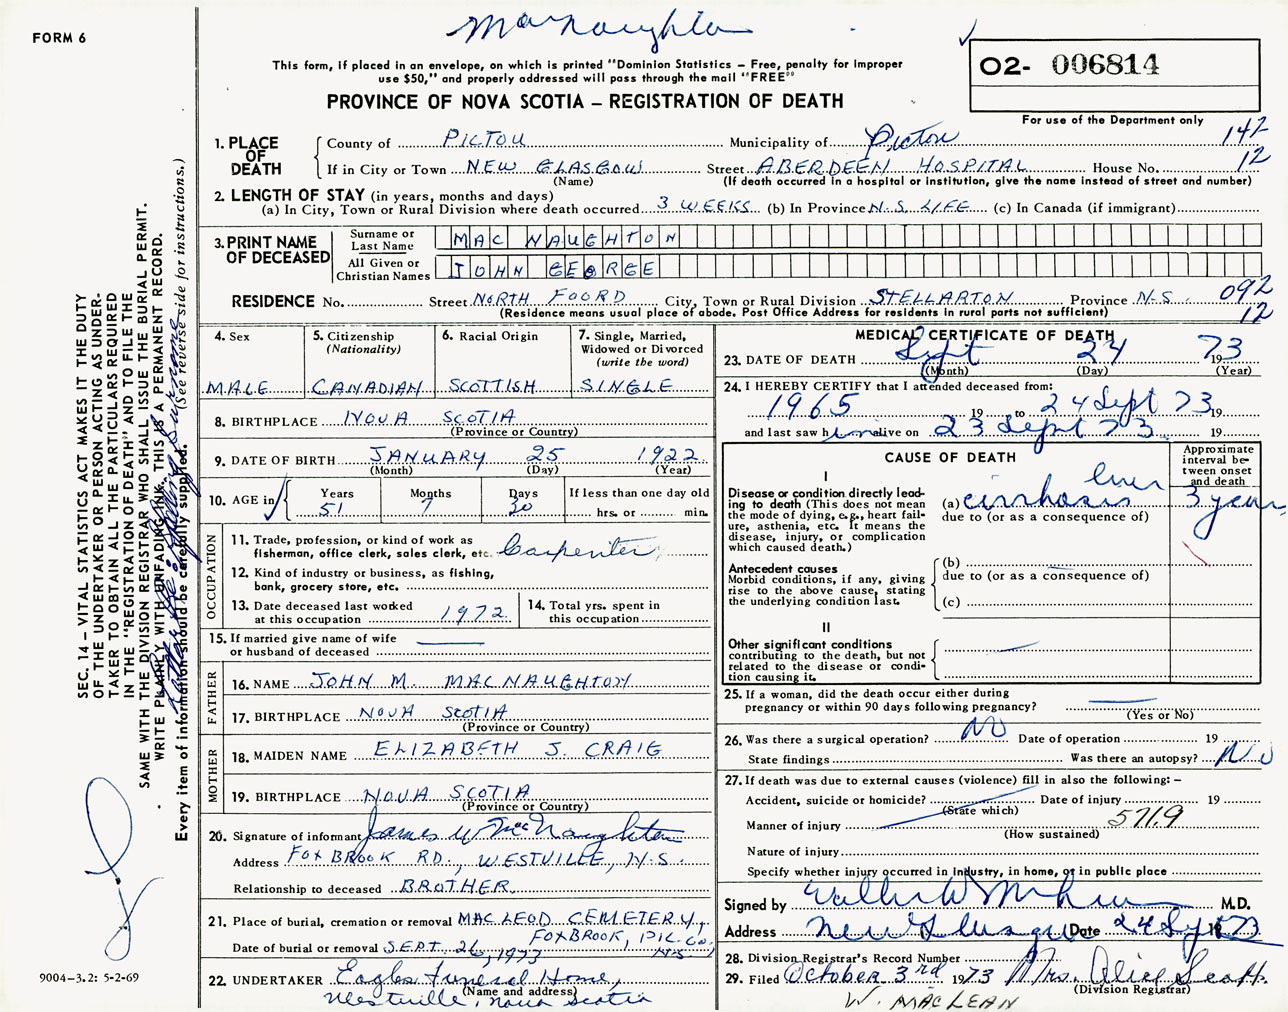 FORM 6
MacNaughton
This form, if placed in an envelope, on which is printed "Dominion Statistics – Free, penalty for improper
use $50," and properly addressed will pass through the mail "FREE"
PROVINCE OF NOVA SCOTIA – REGISTRATION OF DEATH
O2- 006814
For use of the Department only
1. PLACE OF DEATH County of PICTOU Municipality of Pictou 142
If in City or Town NEW GLASGOW Street ABERDEEN HOSPITAL House No. 12
(Name) (If death occurred in a hospital or institution, give the name instead of street and number)
2. LENGTH OF STAY (in years, months and days)
(a) In City, Town or Rural Division where death occurred 3 WEEKS (b) In Province N.S. LIFE (c) In Canada (if immigrant)
3. PRINT NAME OF DECEASED Surname or Last Name MAC NAUGHTON
All Given or Christian Names JOHN GEORGE
RESIDENCE No. Street NORTH FOORD City, Town or Rural Division STELLARTON Province N.S. 092
(Residence means usual place of abode. Post Office Address for residents in rural parts not sufficient) 12
4. Sex 5. Citizenship (Nationality) 6. Racial Origin 7. Single, Married, Widowed or Divorced (write the word)
MALE CANADIAN SCOTTISH SINGLE
8. BIRTHPLACE NOVA SCOTIA
(Province or Country)
9. DATE OF BIRTH JANUARY 25 1922
(Month) (Day) (Year)
10. AGE in Years Months Days If less than one day old
51 7 30 hrs. or min.
OCCUPATION
11. Trade, profession, or kind of work as
fisherman, office clerk, sales clerk, etc. Carpenter
12. Kind of industry or business, as fishing,
bank, grocery store, etc.
13. Date deceased last worked
at this occupation 1972
14. Total yrs. spent in
this occupation
15. If married give name of wife
or husband of deceased
FATHER
16. NAME JOHN M. MACNAUGHTON
17. BIRTHPLACE NOVA SCOTIA
(Province or Country)
MOTHER
18. MAIDEN NAME ELIZABETH J. CRAIG
19. BIRTHPLACE NOVA SCOTIA
(Province or Country)
20. Signature of informant James W McNaughton
Address FOXBROOK RD., WESTVILLE, N.S.
Relationship to deceased BROTHER
21. Place of burial, cremation or removal MACLEOD CEMETERY,
FOXBROOK, PIC. CO. N.S.
Date of burial or removal SEPT. 26, 1973
22. UNDERTAKER Eagles Funeral Home,
(Name and address)
Westville, Nova Scotia
MEDICAL CERTIFICATE OF DEATH
23. DATE OF DEATH Sept 24 1973
(Month) (Day) (Year)
24. I HEREBY CERTIFY that I attended deceased from:
1965 19 to 24 Sept 73 19
and last saw him alive on 23 Sept 73 19
CAUSE OF DEATH
Approximate interval between onset and death
I
Disease or condition directly leading to death (This does not mean the mode of dying, e.g., heart failure, asthenia, etc. It means the disease, injury, or complication which caused death.)
(a) cirrhosis liver 3 years
due to (or as a consequence of)
Antecedent causes
Morbid conditions, if any, giving rise to the above cause, stating the underlying condition last.
(b)
due to (or as a consequence of)
(c)
II
Other significant conditions
contributing to the death, but not related to the disease or condition causing it.
25. If a woman, did the death occur either during
pregnancy or within 90 days following pregnancy?
(Yes or No)
26. Was there a surgical operation? No Date of operation 19
State findings Was there an autopsy? No
27. If death was due to external causes (violence) fill in also the following: –
Accident, suicide or homicide? Date of injury 19
(State which)
Manner of injury 571.9
(How sustained)
Nature of injury
Specify whether injury occurred in Industry, in home, or in public place
Signed by M.D.
Address New Glasgow Date 24 Sept 1973
28. Division Registrar's Record Number
29. Filed October 3rd 1973 Mrs. Alice Scott
(Division Registrar)
W. MACLEAN
SEC. 14 – VITAL STATISTICS ACT MAKES IT THE DUTY
OF THE UNDERTAKER OR PERSON ACTING AS UNDER-
TAKER TO OBTAIN ALL THE PARTICULARS REQUIRED
IN THE "REGISTRATION OF DEATH" AND TO FILE THE
SAME WITH THE DIVISION REGISTRAR WHO SHALL ISSUE THE BURIAL PERMIT.
WRITE PLAINLY WITH UNFADING INK. THIS IS A PERMANENT RECORD.
Every item of information should be carefully supplied. (See reverse side for instructions.)
9004–3.2: 5-2-69